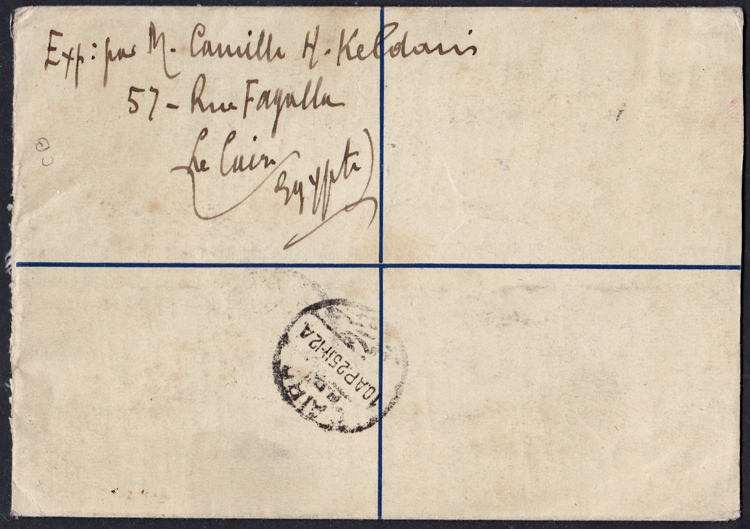 Exp: par M. Camille H. Keldani
57 - Rue Fagalla
Le Caire
Egypte)
CAIRO
10 AP 25 11-12 A